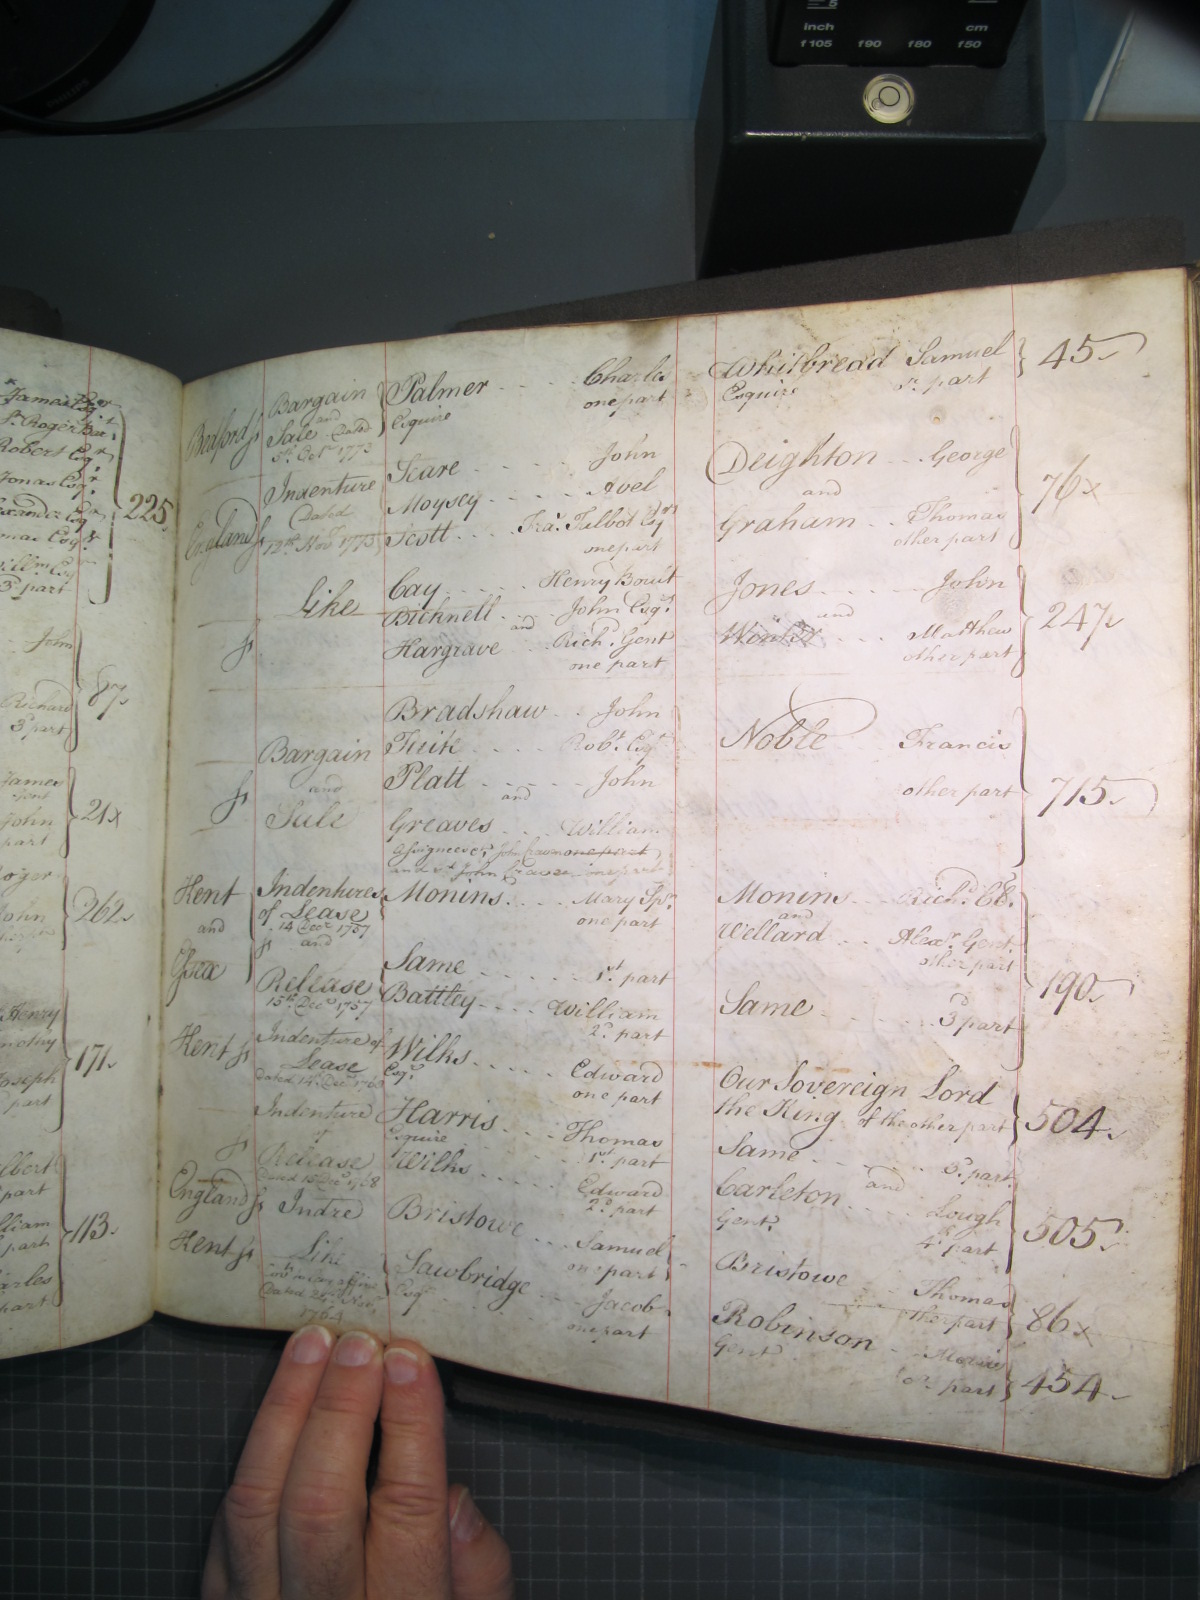 inch cm
f105 f90 f80 f50
James Esqr
Sr Roger Bar
Robert Esqr
Jonas Esqr
Esqr
Esqr
Willm Esq
3d part
225
John
Richard
3d part
87
James
Gent
John
part
21x
Roger
John
262
Henry
Timothy
Joseph
part
171
part
William
part
113
Charles
part
Bedford ss
Bargain
and
Sale Dated
5th Octr 1773
Palmer Charles
Esquire one part
Whitbread Samuel
Esquire or part
45
England ss
Indenture
Dated
12th Novr 1773
Scare John
Moysey Avel
Scott Fras Talbot Esqr
one part
Deighton George
and
Graham Thomas
other part
76x
ss
Like
Cay Henry Boult
Bicknell John Esqrs
and
Hargrave Richd Gent
one part
Jones John
and
Matthew
other part
247
ss
Bargain
and
Sale
Bradshaw John
Tuite Robt Esqr
Platt John
and
Greaves William
Assignees of John Craven one part
and sd John Craven one part
Noble Francis
other part
715
Kent
and
Essex
Indentures
of Lease
14 Decr 1757
ss and
Release
15th Decr 1757
Monins Mary Spr
one part
Same 1st part
Battley William
2d part
Monins Richd Cl.
and
Wellard Alexr Gent.
other part
Same 3d part
190
Kent ss
Indenture of
Lease
Dated 14 Decr
Wilks Edward
Esqr one part
Our Sovereign Lord
the King of the other part
504
ss
Indenture
of
Release
Dated 15 Decr
Harris Thomas
Esquire 1st part
Wilks Edward
2d part
Same 3d part
and
Carleton Lough
Gent. 4th part
505
England ss
Indre
Bristowe Samuel
one part
Bristowe Thomas
other part
86x
Kent ss
Like
Dated 24th Novr
1764
Sawbridge Jacob
Esqr one part
Robinson
Gent or part
454